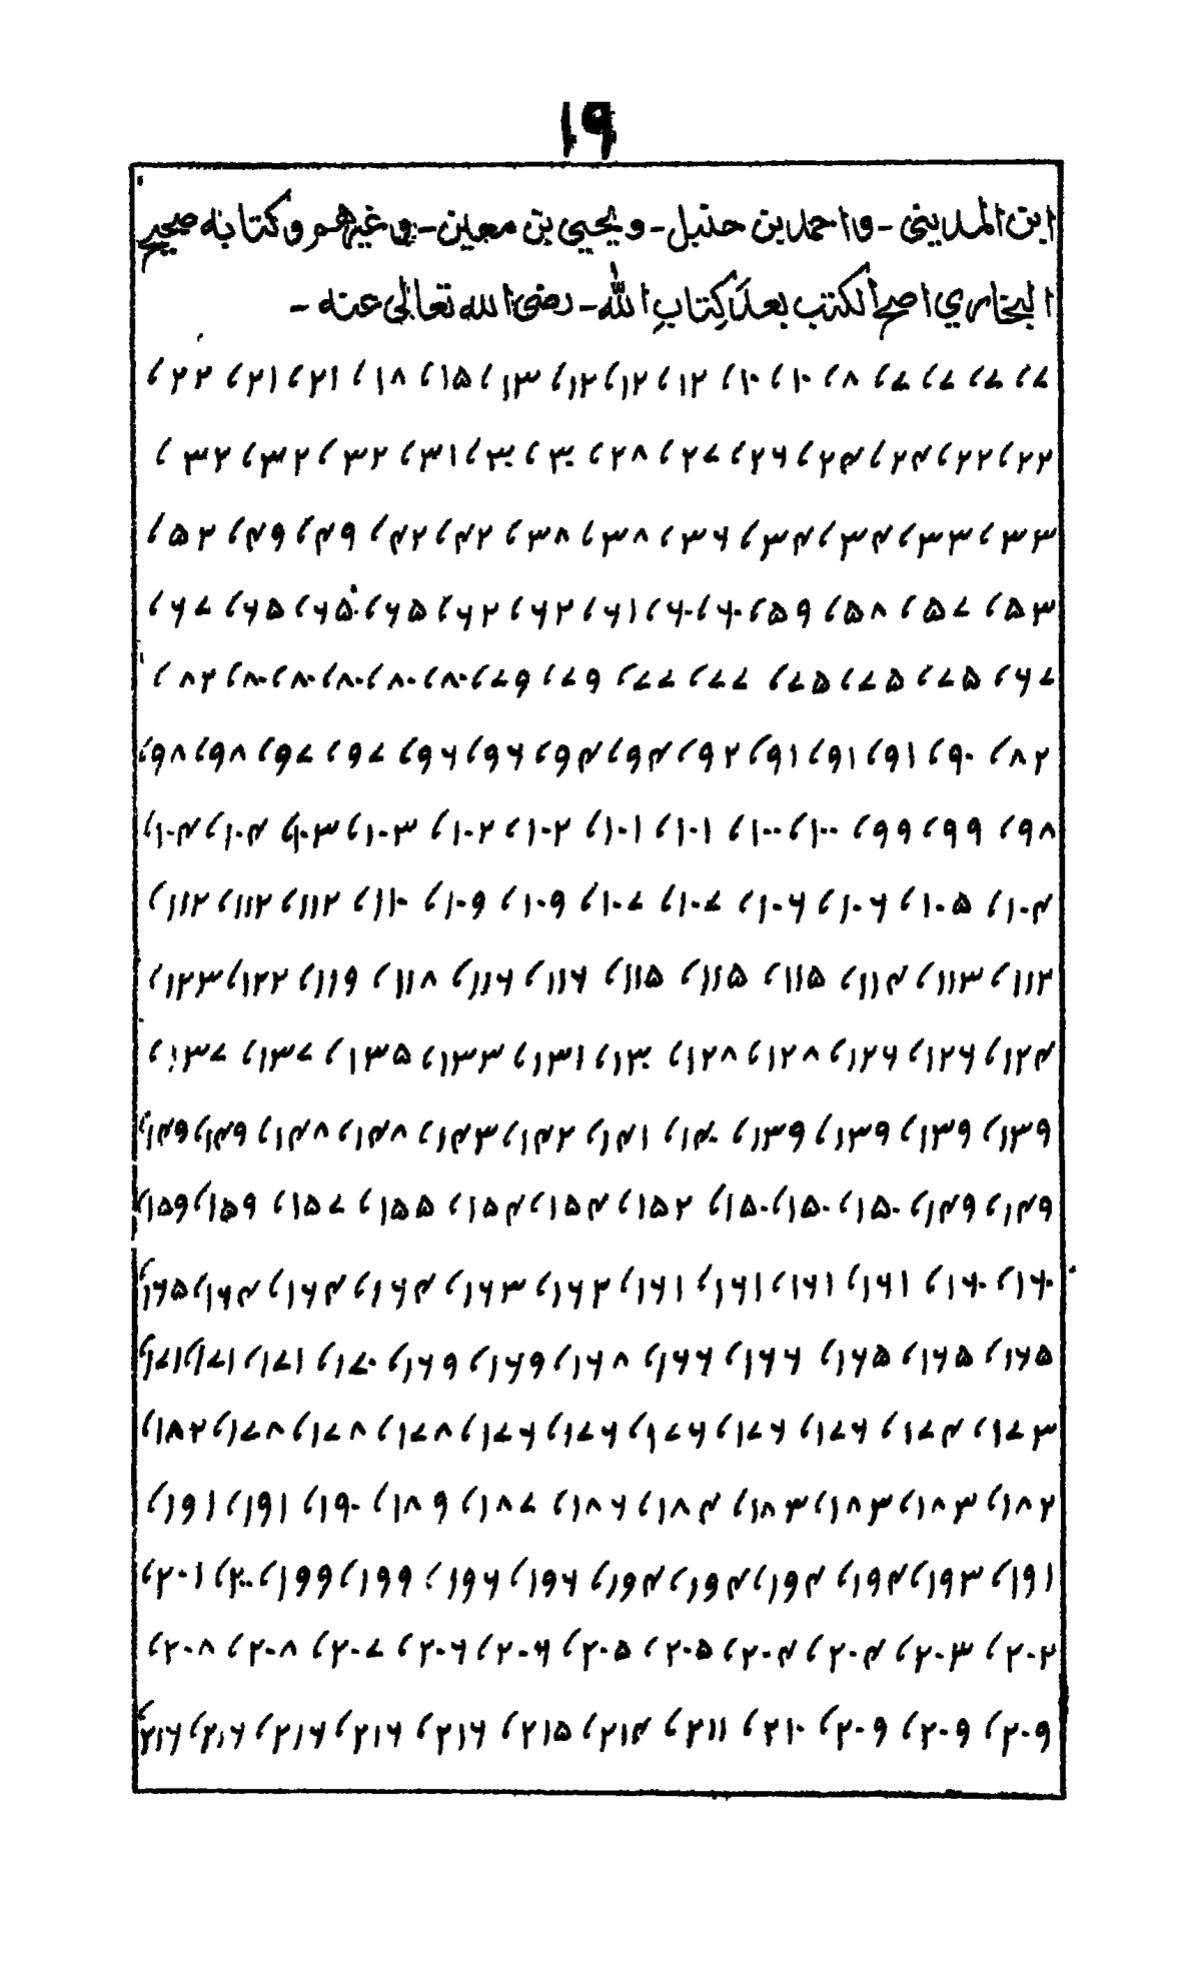 ۱۹
ابن المديني - واحمد بن حنبل - ويحيى بن معين - وغيرهم وكتابه صحيح
البخاري اصح الكتب بعد كِتابِ الله - رضى الله تعالى عنه -
۷، ۷، ۷، ۷، ۸، ۱۰، ۱۰، ۱۲، ۱۲، ۱۲، ۱۳، ۱۵، ۱۸، ۲۱، ۲۱، ۲۲،
۲۲، ۲۲، ۲۴، ۲۴، ۲۶، ۲۷، ۲۸، ۳۰، ۳۰، ۳۱، ۳۲، ۳۲، ۳۲،
۳۳، ۳۳، ۳۴، ۳۴، ۳۶، ۳۸، ۳۸، ۴۲، ۴۲، ۴۹، ۴۹، ۵۲،
۵۳، ۵۷، ۵۸، ۵۹، ۶۰، ۶۰، ۶۱، ۶۲، ۶۲، ۶۵، ۶۵، ۶۵، ۶۷،
۶۷، ۷۵، ۷۵، ۷۵، ۷۷، ۷۷، ۷۹، ۷۹، ۸۰، ۸۰، ۸۰، ۸۰، ۸۰، ۸۲،
۸۲، ۹۰، ۹۱، ۹۱، ۹۱، ۹۲، ۹۴، ۹۴، ۹۶، ۹۶، ۹۷، ۹۷، ۹۸، ۹۸،
۹۸، ۹۹، ۹۹، ۱۰۰، ۱۰۰، ۱۰۱، ۱۰۱، ۱۰۲، ۱۰۲، ۱۰۳، ۱۰۳، ۱۰۴، ۱۰۴،
۱۰۴، ۱۰۵، ۱۰۶، ۱۰۶، ۱۰۷، ۱۰۷، ۱۰۹، ۱۰۹، ۱۱۰، ۱۱۲، ۱۱۲، ۱۱۲،
۱۱۲، ۱۱۳، ۱۱۴، ۱۱۵، ۱۱۵، ۱۱۵، ۱۱۶، ۱۱۶، ۱۱۸، ۱۱۹، ۱۲۲، ۱۲۳،
۱۲۴، ۱۲۶، ۱۲۶، ۱۲۸، ۱۲۸، ۱۳۰، ۱۳۱، ۱۳۳، ۱۳۵، ۱۳۷، ۱۳۷،
۱۳۹، ۱۳۹، ۱۳۹، ۱۳۹، ۱۴۰، ۱۴۱، ۱۴۲، ۱۴۳، ۱۴۸، ۱۴۸، ۱۴۹، ۱۴۹،
۱۴۹، ۱۴۹، ۱۵۰، ۱۵۰، ۱۵۰، ۱۵۲، ۱۵۴، ۱۵۴، ۱۵۵، ۱۵۷، ۱۵۹، ۱۵۹،
۱۶۰، ۱۶۰، ۱۶۱، ۱۶۱، ۱۶۱، ۱۶۱، ۱۶۳، ۱۶۳، ۱۶۴، ۱۶۴، ۱۶۴، ۱۶۵،
۱۶۵، ۱۶۵، ۱۶۵، ۱۶۶، ۱۶۶، ۱۶۸، ۱۶۹، ۱۶۹، ۱۷۰، ۱۷۱، ۱۷۱، ۱۷۱،
۱۷۳، ۱۷۴، ۱۷۶، ۱۷۶، ۱۷۶، ۱۷۶، ۱۷۶، ۱۷۸، ۱۷۸، ۱۷۸، ۱۸۲،
۱۸۲، ۱۸۳، ۱۸۳، ۱۸۳، ۱۸۴، ۱۸۶، ۱۸۷، ۱۸۹، ۱۹۰، ۱۹۱، ۱۹۱،
۱۹۱، ۱۹۳، ۱۹۴، ۱۹۴، ۱۹۴، ۱۹۴، ۱۹۶، ۱۹۶، ۱۹۹، ۱۹۹، ۲۰۰، ۲۰۱،
۲۰۲، ۲۰۳، ۲۰۴، ۲۰۴، ۲۰۵، ۲۰۵، ۲۰۶، ۲۰۶، ۲۰۷، ۲۰۸، ۲۰۸،
۲۰۹، ۲۰۹، ۲۰۹، ۲۱۰، ۲۱۱، ۲۱۴، ۲۱۵، ۲۱۶، ۲۱۶، ۲۱۶، ۲۱۶، ۲۱۶،